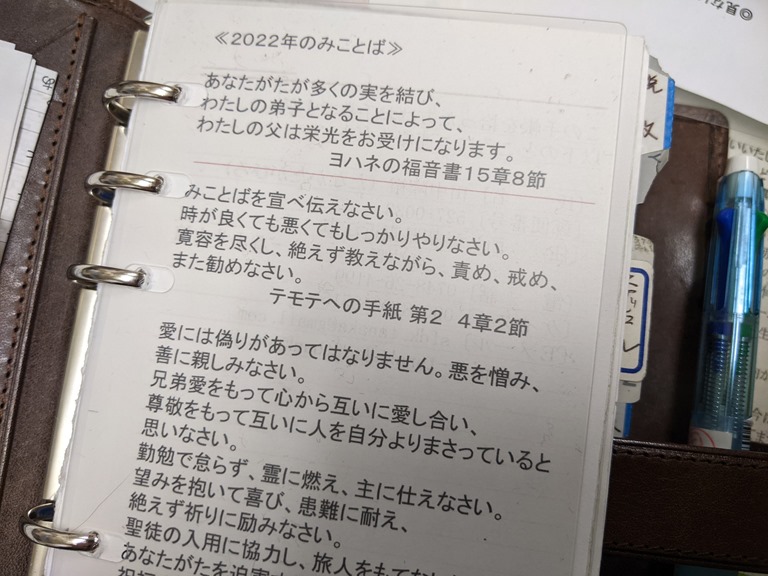 ≪2022年のみことば≫
あなたがたが多くの実を結び、
わたしの弟子となることによって、
わたしの父は栄光をお受けになります。
ヨハネの福音書15章8節
みことばを宣べ伝えなさい。
時が良くても悪くてもしっかりやりなさい。
寛容を尽くし、絶えず教えながら、責め、戒め、
また勧めなさい。
テモテへの手紙 第2 4章2節
愛には偽りがあってはなりません。悪を憎み、
善に親しみなさい。
兄弟愛をもって心から互いに愛し合い、
尊敬をもって互いに人を自分よりまさっていると
思いなさい。
勤勉で怠らず、霊に燃え、主に仕えなさい。
望みを抱いて喜び、患難に耐え、
絶えず祈りに励みなさい。
聖徒の入用に協力し、旅人をもてなし
あなたがたを迫害す
◎見な